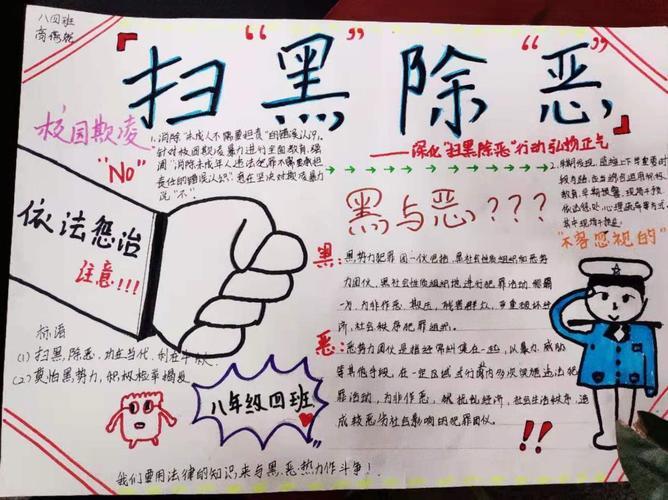 八四班
扫“黑”除“恶”
——深化“扫黑除恶”行动弘扬正气
校园欺凌
“NO”
1.消除“未成人不需要担责”的错误认识,
针对校园欺凌暴力进行全面教育,强
调“消除未成年人违法犯罪不需要承担
责任的错误认识”,意在坚决对欺凌暴力
说“不”.
2.
“不容忽视的”
依法惩治
注意!!!
黑与恶???
黑:黑势力犯罪团一伙包括,黑社会性质组织和恶势
力团伙,黑社会性质组织地进行犯罪活动,称霸
一方,为非作恶,欺压,残害群众,严重破坏经
济,社会秩序犯罪组织.
恶:恶势力团伙是指经常纠集在一起,以暴力,威胁
等其他手段,在一定区域
犯罪活动,为非作恶,扰乱经济,社会生活秩序,造
成较恶劣社会影响的犯罪团伙
标语
(1)扫黑,除恶,功在当代,利在千秋.
(2)莫怕黑势力,积极检举揭发
八年级四班
!!
我们要用法律的知识,来与黑,恶,热力作斗争!